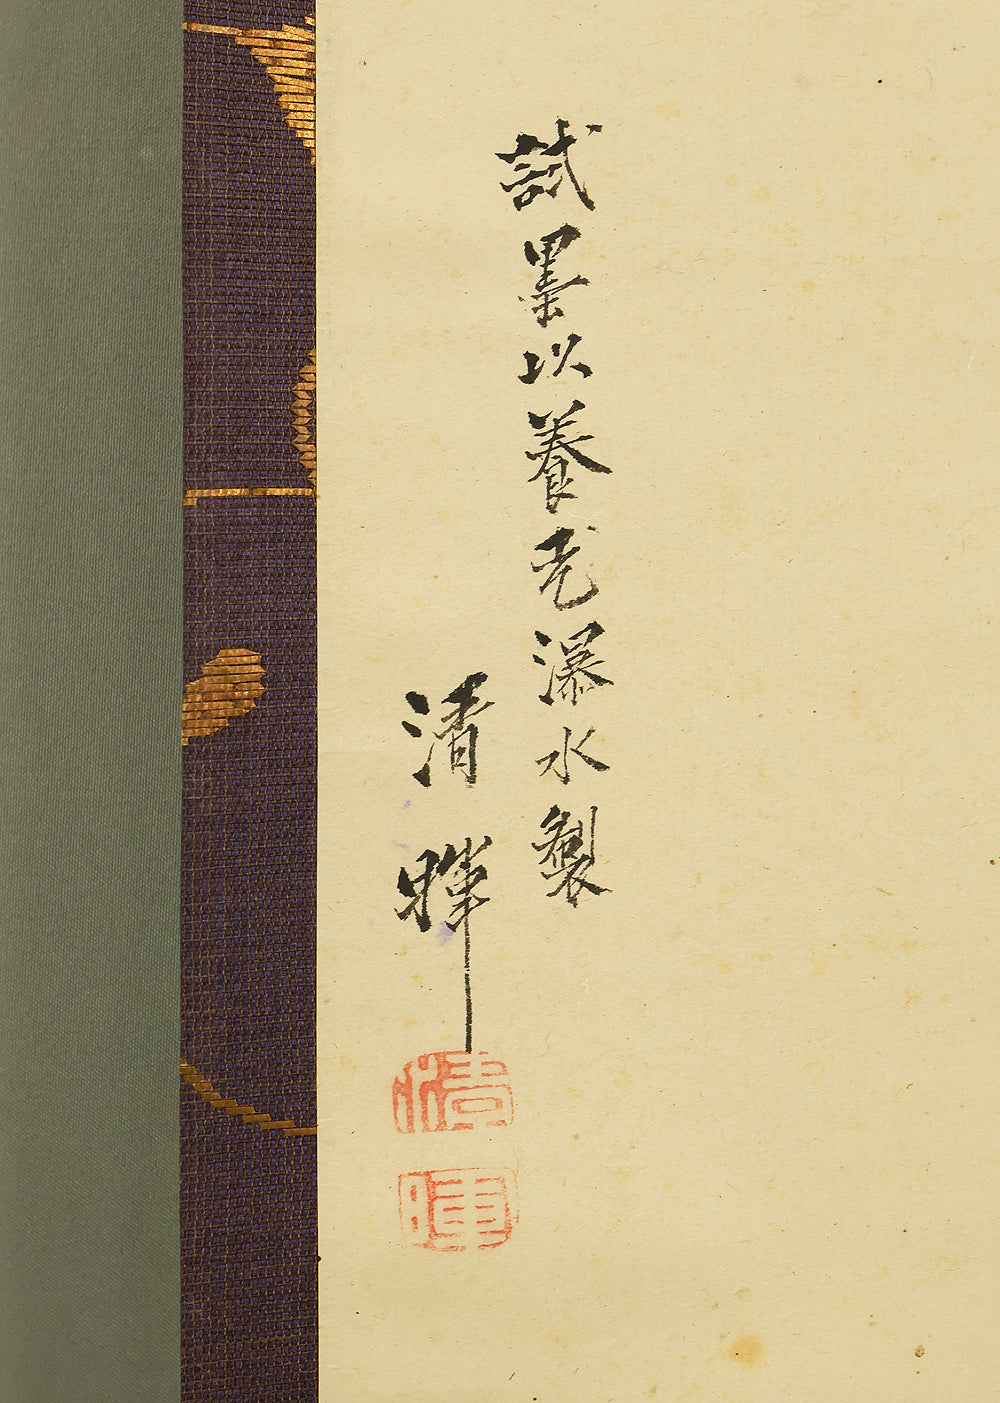 試墨以養老瀑水製
清暉
清
暉